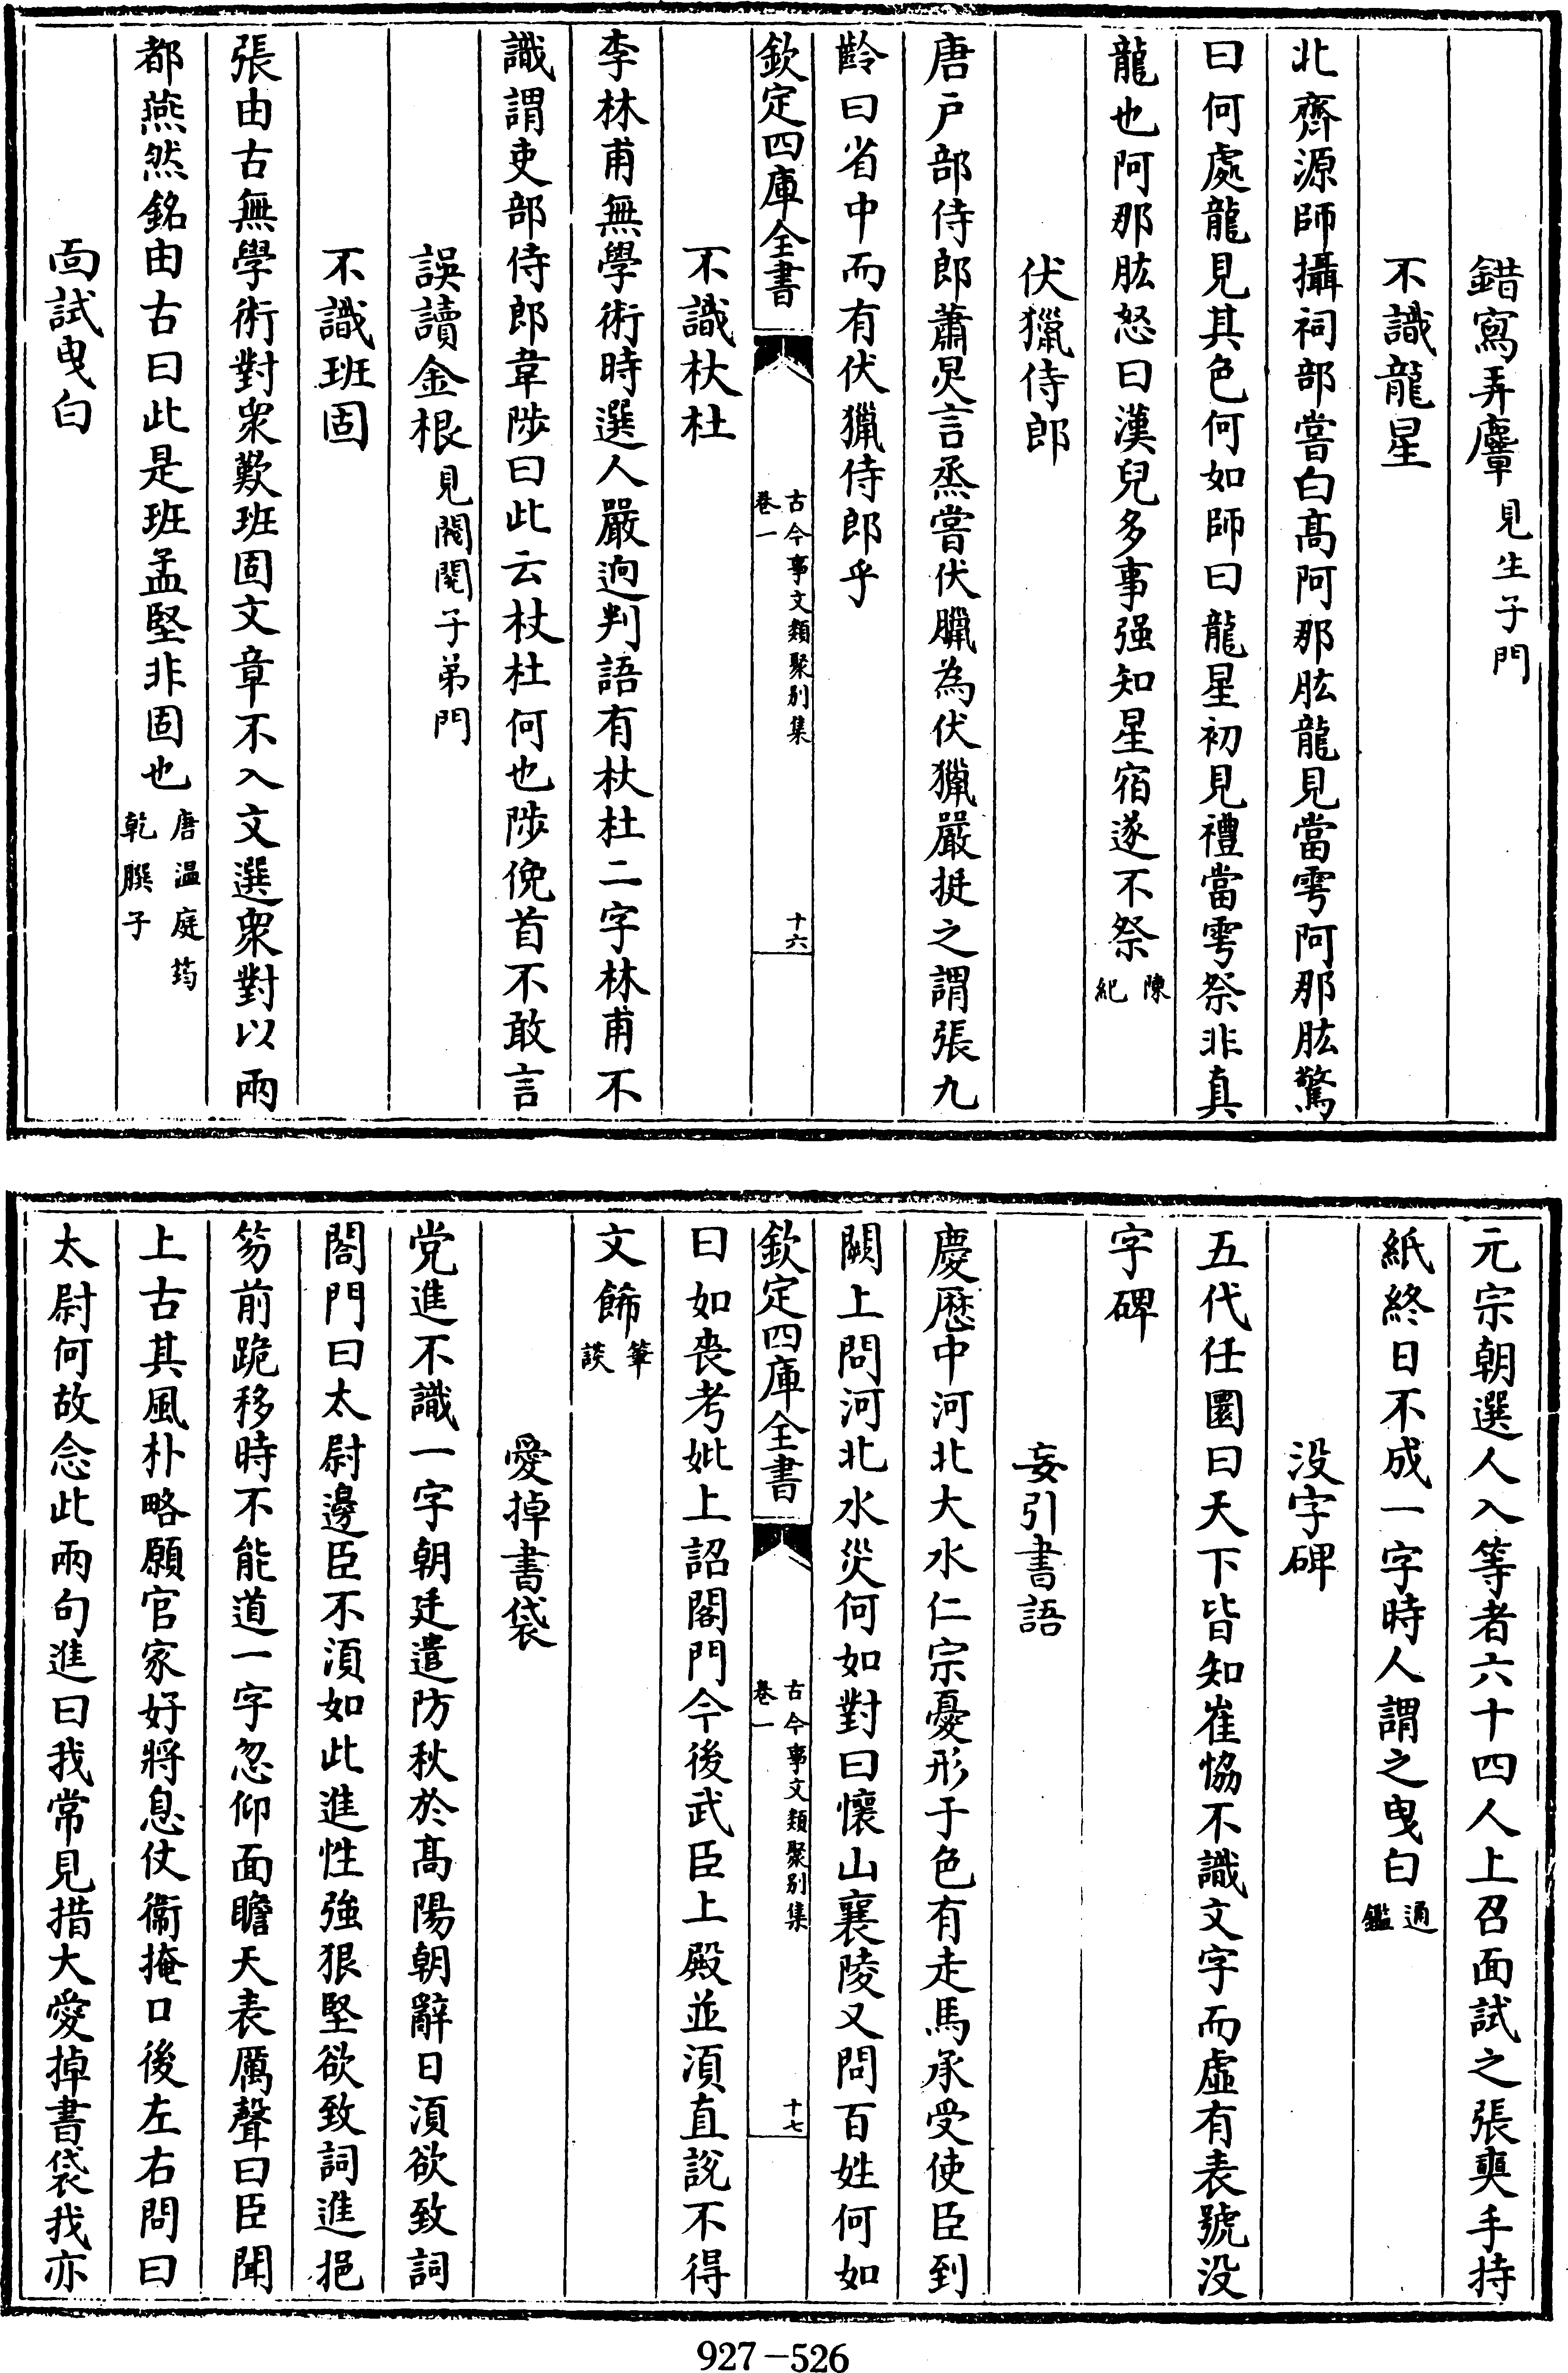 錯寫弄麞見生子門
不識龍星
北齊源師攝祠部嘗白髙阿那肱龍見當雩阿那肱驚
曰何處龍見其色何如師曰龍星初見禮當雩祭非真
龍也阿那肱怒曰漢兒多事强知星宿遂不祭陳紀
伏獵侍郎
唐戶部侍郎蕭炅言烝嘗伏臘為伏獵嚴挺之謂張九
齡曰省中而有伏獵侍郎乎
欽定四庫全書
古今事文類聚别集
卷一
十六
不識杕杜
李林甫無學術時選人嚴迥判語有杕杜二字林甫不
識謂吏部侍郎韋陟曰此云杖杜何也陟俛首不敢言
誤讀金根見閥閱子弟門
不識班固
張由古無學術對衆歎班固文章不入文選衆對以兩
都燕然銘由古曰此是班孟堅非固也唐温庭筠乾𦠆子
面試曳白
元宗朝選人入等者六十四人上召面試之張奭手持
紙終日不成一字時人謂之曳白通鑑
没字碑
五代任圜曰天下皆知崔恊不識文字而虛有表號没
字碑
妄引書語
慶厯中河北大水仁宗憂形于色有走馬承受使臣到
闕上問河北水災何如對曰懷山襄陵又問百姓何如
欽定四庫全書
古今事文類聚别集
卷一
十七
曰如喪考妣上詔閤門今後武臣上殿並須直說不得
文飾筆談
愛掉書袋
党進不識一字朝廷遣防秋於髙陽朝辭日須欲致詞
閤門曰太尉邊臣不須如此進性強狠堅欲致詞進挹
笏前跪移時不能道一字忽仰面瞻天表厲聲曰臣聞
上古其風朴略願官家好將息仗衞掩口後左右問曰
太尉何故念此兩句進曰我常見措大愛掉書袋我亦
927-526